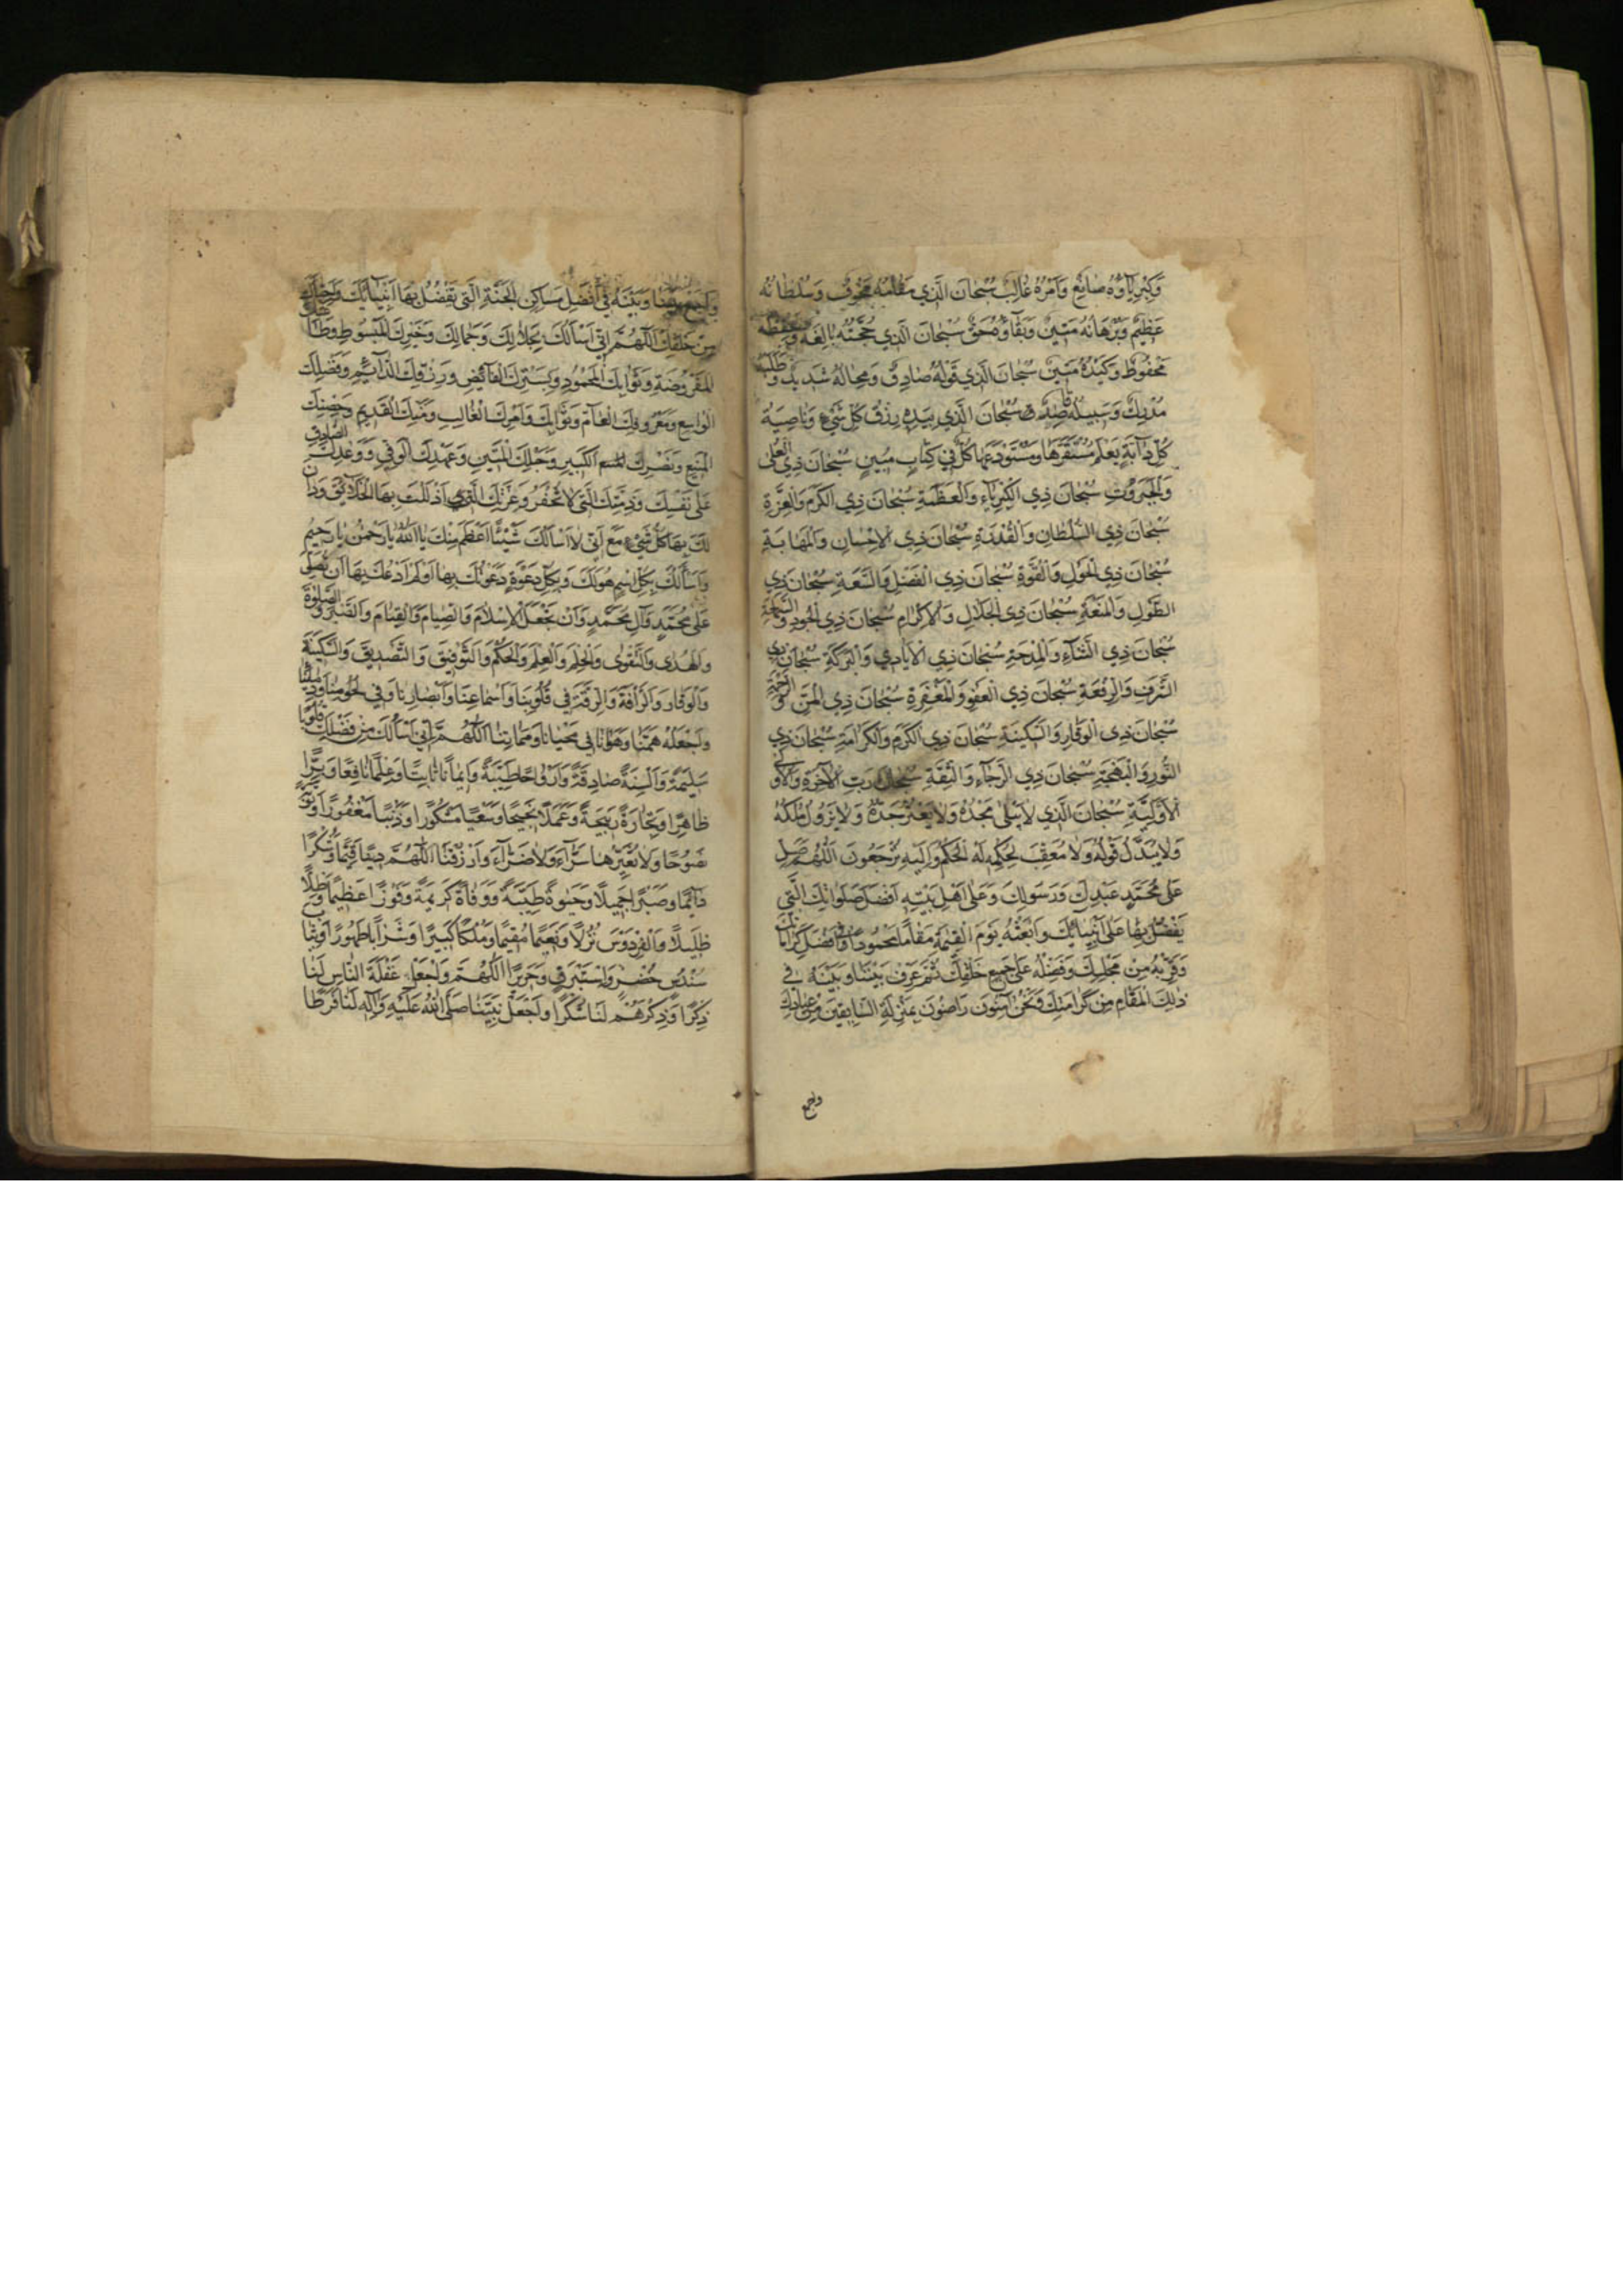 وَكِبْرِيَاؤُهُ صَانِعٌ وَأَمْرُهُ غَالِبٌ سُبْحَانَ الَّذِي مَقَامُهُ مَخُوفٌ وَسُلْطَانُهُ
عَظِيمٌ وَبُرْهَانُهُ مَتِينٌ وَبَقَاؤُهُ حَقٌّ سُبْحَانَ الَّذِي حُجَّتُهُ بَالِغَةٌ وَحِفْظُهُ
مَحْفُوظٌ وَكَيْدُهُ مَتِينٌ سُبْحَانَ الَّذِي قَوْلُهُ صَادِقٌ وَمِحَالُهُ شَدِيدٌ وَطَلَبُهُ
مُدْرِكٌ وَسَبِيلُهُ قَاصِدٌ سُبْحَانَ الَّذِي بِيَدِهِ رِزْقُ كُلِّ شَيْءٍ وَنَاصِيَةُ
كُلِّ دَآبَّةٍ يَعْلَمُ مُسْتَقَرَّهَا وَمُسْتَوْدَعَهَا كُلٌّ فِي كِتَابٍ مُبِينٍ سُبْحَانَ ذِي الْعُلَى
وَالْجَبَرُوتِ سُبْحَانَ ذِي الْكِبْرِيَآءِ وَالْعَظَمَةِ سُبْحَانَ ذِي الْكَرَمِ وَالْعِزَّةِ
سُبْحَانَ ذِي السُّلْطَانِ وَالْقُدْرَةِ سُبْحَانَ ذِي الْاِحْسَانِ وَالْمَهَابَةِ
سُبْحَانَ ذِي الْحَوْلِ وَالْقُوَّةِ سُبْحَانَ ذِي الْفَضْلِ وَالسَّعَةِ سُبْحَانَ ذِي
الطَّوْلِ وَالْمَنَعَةِ سُبْحَانَ ذِي الْجَلَالِ وَالْاِكْرَامِ سُبْحَانَ ذِي الْجُودِ وَالسَّمَاحَةِ
سُبْحَانَ ذِي الثَّنَآءِ وَالْمِدْحَةِ سُبْحَانَ ذِي الْاَيَادِي وَالْبَرَكَةِ سُبْحَانَ ذِي
الشَّرَفِ وَالرِّفْعَةِ سُبْحَانَ ذِي الْعَفْوِ وَالْمَغْفِرَةِ سُبْحَانَ ذِي الْمَنِّ وَالرَّحْمَةِ
سُبْحَانَ ذِي الْوَقَارِ وَالسَّكِينَةِ سُبْحَانَ ذِي الْكَرَمِ وَالْكَرَامَةِ سُبْحَانَ ذِي
النُّورِ وَالْبَهْجَةِ سُبْحَانَ ذِي الرَّجَآءِ وَالثِّقَةِ سُبْحَانَ رَبِّ الْآخِرَةِ وَالْاُولَى
سُبْحَانَ الَّذِي لَا يَبْلَى مَجْدُهُ وَلَا جَدُّهُ وَلَا يَزُولُ مُلْكُهُ
وَلَا يُبَدَّلُ قَوْلُهُ وَلَا مُعَقِّبَ لِحُكْمِهِ لَهُ الْحُكْمُ وَاِلَيْهِ تُرْجَعُونَ اَللّٰهُمَّ صَلِّ
عَلَى مُحَمَّدٍ عَبْدِكَ وَرَسُولِكَ وَعَلَى اَهْلِ بَيْتِهِ اَفْضَلَ صَلَوَاتِكَ الَّتِي
يَفْضُلُ بِهَا عَلَى اَنْبِيَائِكَ وَابْعَثْهُ يَوْمَ الْقِيٰمَةِ مَقَامًا مَحْمُودًا فِي اَفْضَلِ كَرَامَاتِكَ
وَقَرِّبْهُ مِنْ مَجْلِسِكَ وَفَضِّلْهُ عَلَى جَمِيعِ خَلْقِكَ ثُمَّ عَرِّفْ بَيْنَنَا وَبَيْنَهُ فِي
ذٰلِكَ الْمَقَامِ مِنْ كَرَامَتِكَ وَنَحْنُ آمِنُونَ رَاضُونَ بِمَنْزِلَةِ السَّابِقِينَ مِنْ عِبَادِكَ
واجمع
وَاجْمَعْ بَيْنَنَا وَبَيْنَهُ فِي اَفْضَلِ مَسَاكِنِ الْجَنَّةِ الَّتِي تُفَضِّلُ بِهَا اَنْبِيَائَكَ
مِنْ خَلْقِكَ اَللّٰهُمَّ اِنِّي اَسْاَلُكَ بِجَلَالِكَ وَجَمَالِكَ وَخَيْرِكَ الْمَبْسُوطِ
الْمَفْرُوضَةِ وَثَوَابِكَ الْمَحْمُودِ وَبِسِتْرِكَ الْفَائِضِ وَرِزْقِكَ الدَّآئِمِ وَفَضْلِكَ
الْوَاسِعِ وَمَعْرُوفِكَ الْعَآمِّ وَثَوَابِكَ وَاَمْرِكَ الْغَالِبِ وَمَنِّكَ الْقَدِيمِ وَحِصْنِكَ
الْمَنِيعِ وَنَصْرِكَ الْكَبِيرِ وَحَبْلِكَ الْمَتِينِ وَعَهْدِكَ الْوَفِيِّ وَوَعْدِكَ الصَّادِقِ
عَلَى نَفْسِكَ وَذِمَّتِكَ الَّتِي لَا تُخْفَرُ وَعِزَّتِكَ الَّتِي اَذْلَلْتَ بِهَا الْخَلَائِقَ وَدَانَ
لَكَ بِهَا كُلُّ شَيْءٍ مَعَ اَنِّي لَا اَسْاَلُكَ شَيْئًا اَعْظَمَ مِنْكَ يَا اَللّٰهُ يَا رَحْمٰنُ يَا رَحِيمُ
وَاَسْأَلُكَ بِكُلِّ اسْمٍ هُوَ لَكَ وَبِكُلِّ دَعْوَةٍ دَعَوْتُكَ بِهَا اَوْ لَمْ اَدْعُكَ بِهَا اَنْ تُصَلِّيَ
عَلَى مُحَمَّدٍ وَآلِ مُحَمَّدٍ وَاَنْ تَجْعَلَ الْاِسْلَامَ وَالصِّيَامَ وَالْقِيَامَ وَالصَّبْرَ وَالصَّلٰوةَ
وَالْهُدَى وَالتَّقْوَى وَالْحِلْمَ وَالْعِلْمَ وَالْحُكْمَ وَالتَّوْفِيقَ وَالتَّصْدِيقَ وَالسَّكِينَةَ
وَالْوَقَارَ وَالرَّأْفَةَ وَالرِّقَّةَ فِي قُلُوبِنَا وَاَسْمَاعِنَا وَاَبْصَارِنَا وَفِي لُحُومِنَا وَدِمَائِنَا
وَاجْعَلْهُ هَمَّنَا وَهَوَانَا فِي مَحْيَانَا وَمَمَاتِنَا اَللّٰهُمَّ اِنِّي اَسْاَلُكَ مِنْ فَضْلِكَ قُلُوبًا
سَلِيمَةً وَاَلْسِنَةً صَادِقَةً وَاَزْوَاجًا طَيِّبَةً وَاِيمَانًا ثَابِتًا وَعِلْمًا نَافِعًا وَبِرًّا
ظَاهِرًا وَتِجَارَةً رَبِيحَةً وَعَمَلًا نَجِيحًا وَسَعْيًا مَشْكُورًا وَذَنْبًا مَغْفُورًا وَتَوْبَةً
نَصُوحًا وَلَا تُغَيِّرُهَا سَرَّآءُ وَلَا ضَرَّآءُ وَارْزُقْنَا اَللّٰهُمَّ دِينًا قَيِّمًا وَشُكْرًا
دَآئِمًا وَصَبْرًا جَمِيلًا وَحَيٰوةً طَيِّبَةً وَوَفَاةً كَرِيمَةً وَفَوْزًا عَظِيمًا وَظِلًّا
ظَلِيلًا وَالْفِرْدَوْسَ نُزُلًا وَنَعِيمًا مُقِيمًا وَمُلْكًا كَبِيرًا وَشَرَابًا طَهُورًا وَثِيَابَ
سُنْدُسٍ خُضْرٍ وَاِسْتَبْرَقٍ وَحَرِيرًا اَللّٰهُمَّ وَاجْعَلْ غَفْلَةَ النَّاسِ لَنَا
ذِكْرًا وَذِكْرَهُمْ لَنَا شُكْرًا وَاجْعَلْ نَبِيَّنَا صَلَّى اللّٰهُ عَلَيْهِ وَآلِهِ لَنَا فَرَطًا